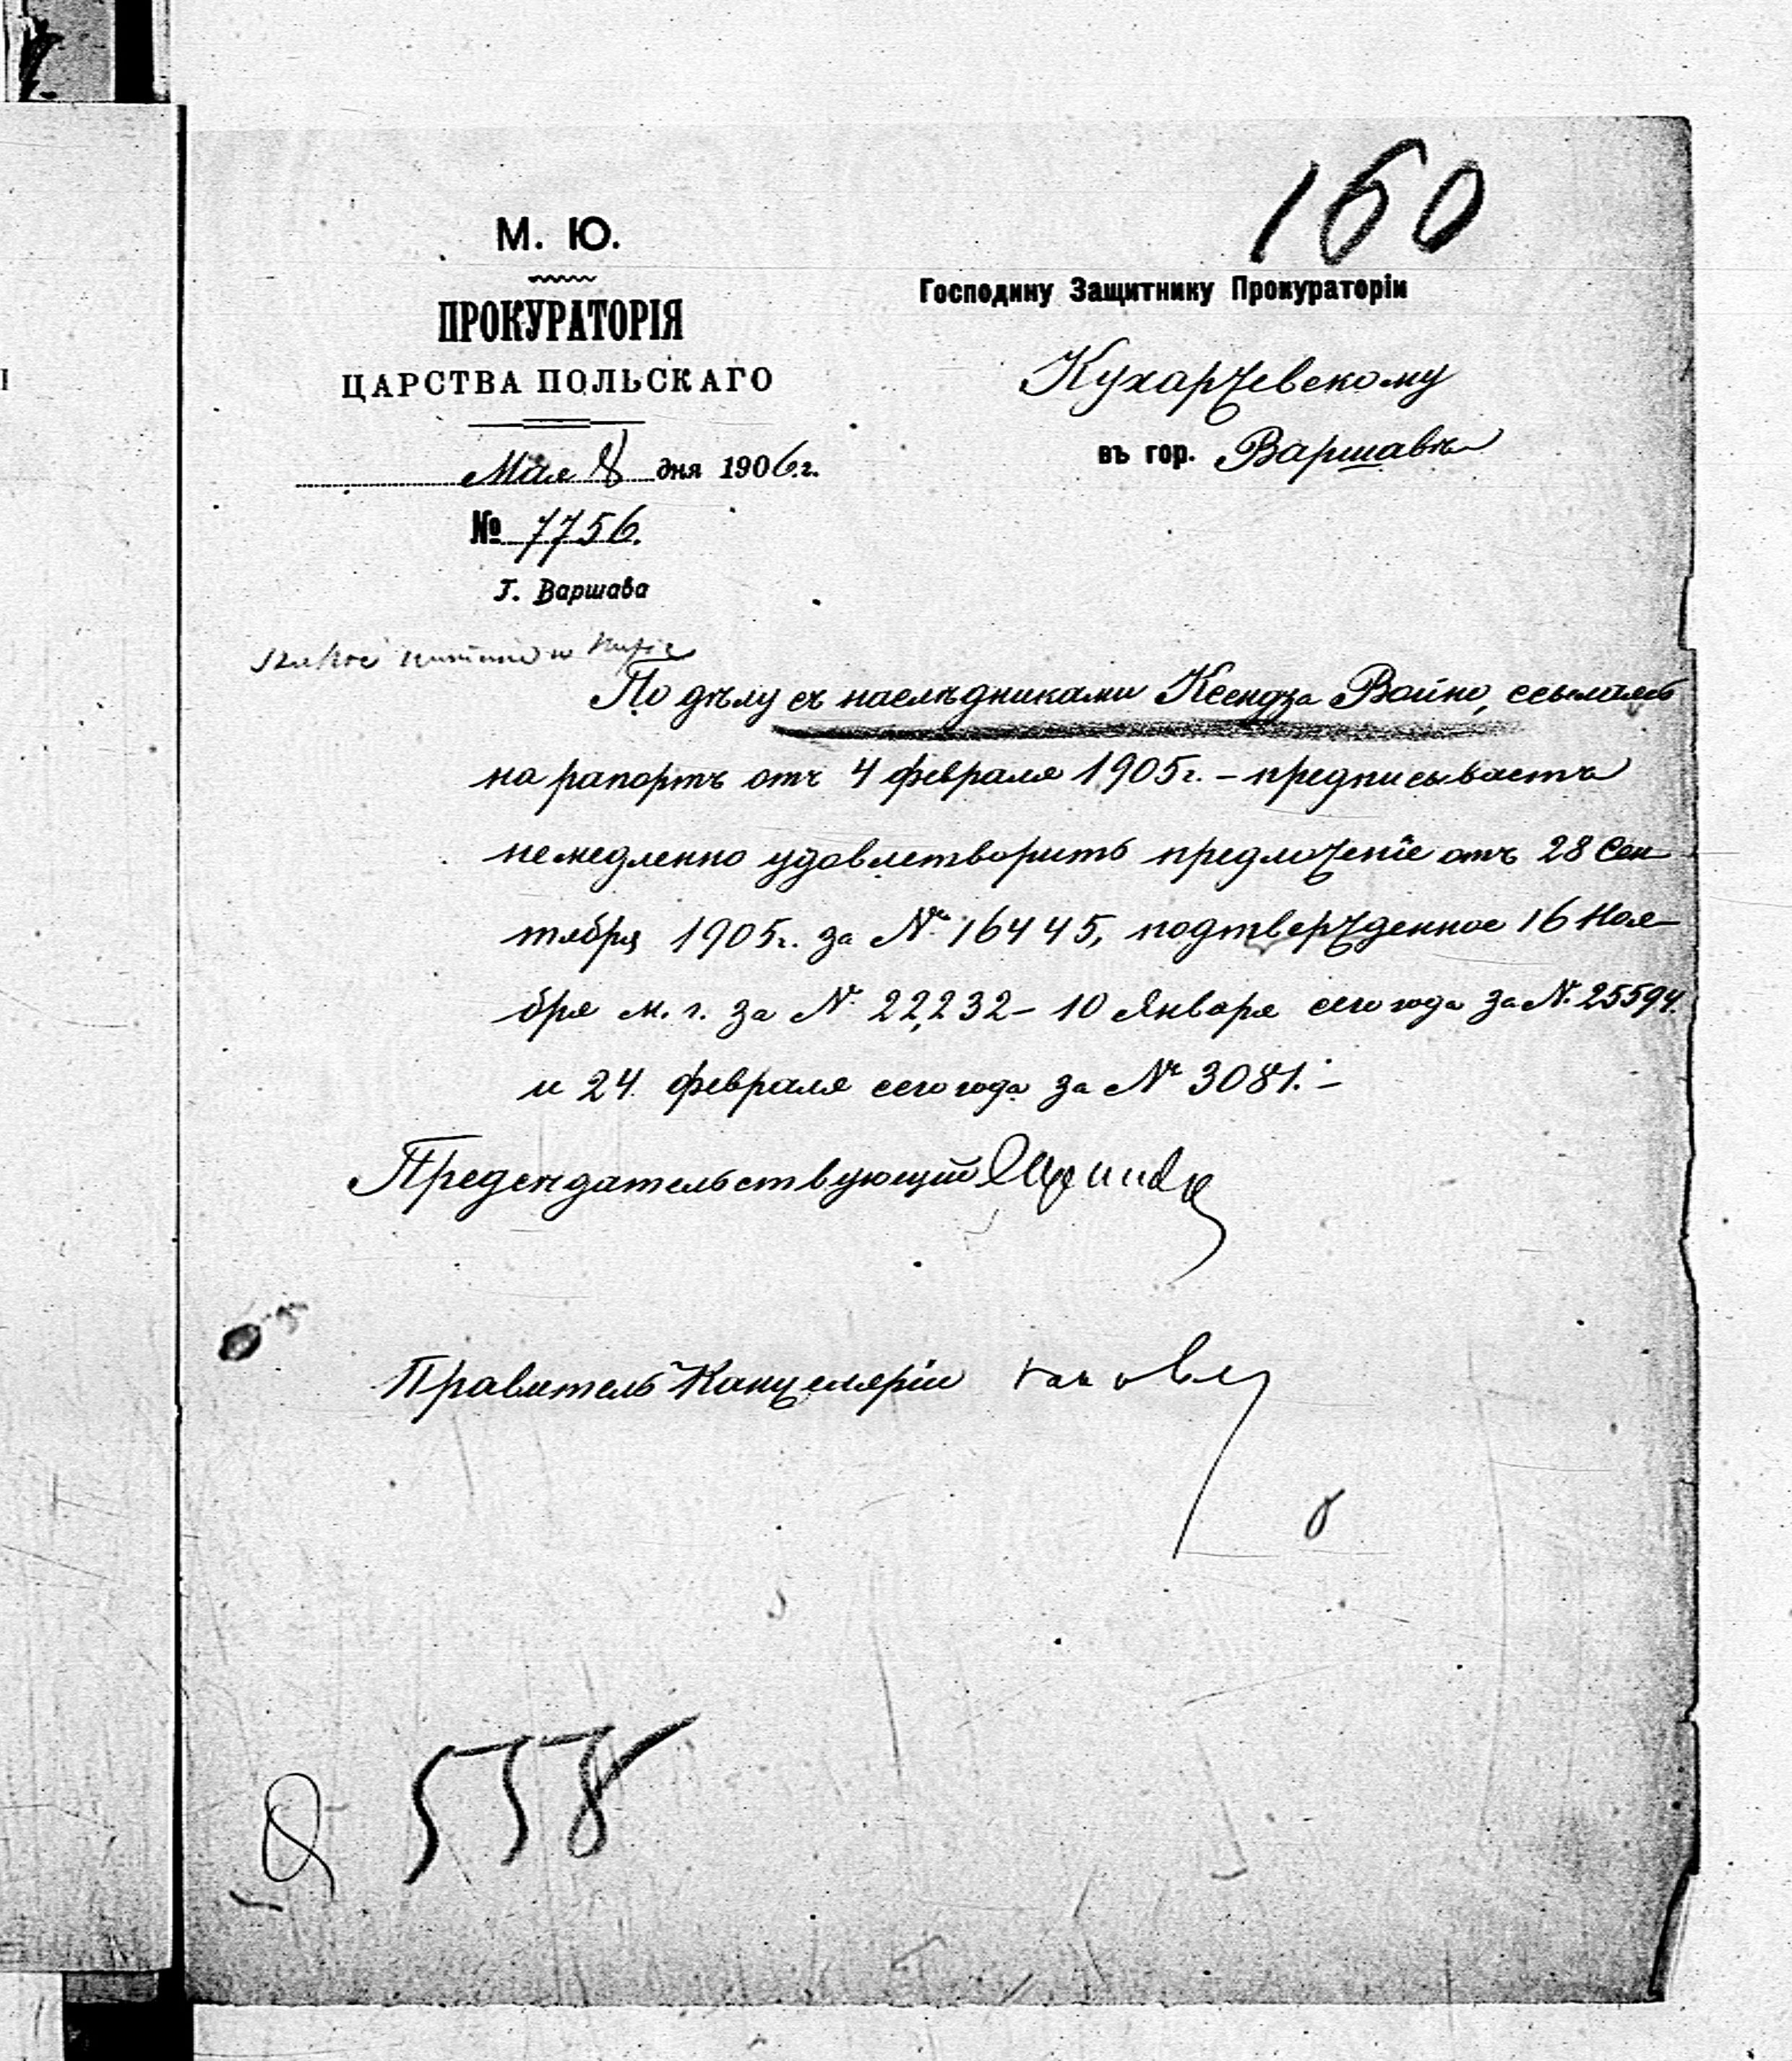 160
М. Ю.
ПРОКУРАТОРІЯ
ЦАРСТВА ПОЛЬСКАГО
Мая 8 дня 1906 г.
№ 7756.
Г. Варшава
Господину Защитнику Прокураторіи
Кухаржевскому
въ гор. Варшавѣ
По дѣлу съ наслѣдниками Ксендза Войно, ссылаясь
на рапортъ отъ 4 февраля 1905 г. – предписываетъ
немедленно удовлетворить предложеніе отъ 28 Сен-
тября 1905 г. за № 16445, подтвержденное 16 Ноя-
бря м. г. за № 22,232 – 10 Января сего года за № 25594.
и 24 февраля сего года за № 3081. –
Предсѣдательствующій
Правитель Канцеляріи
558